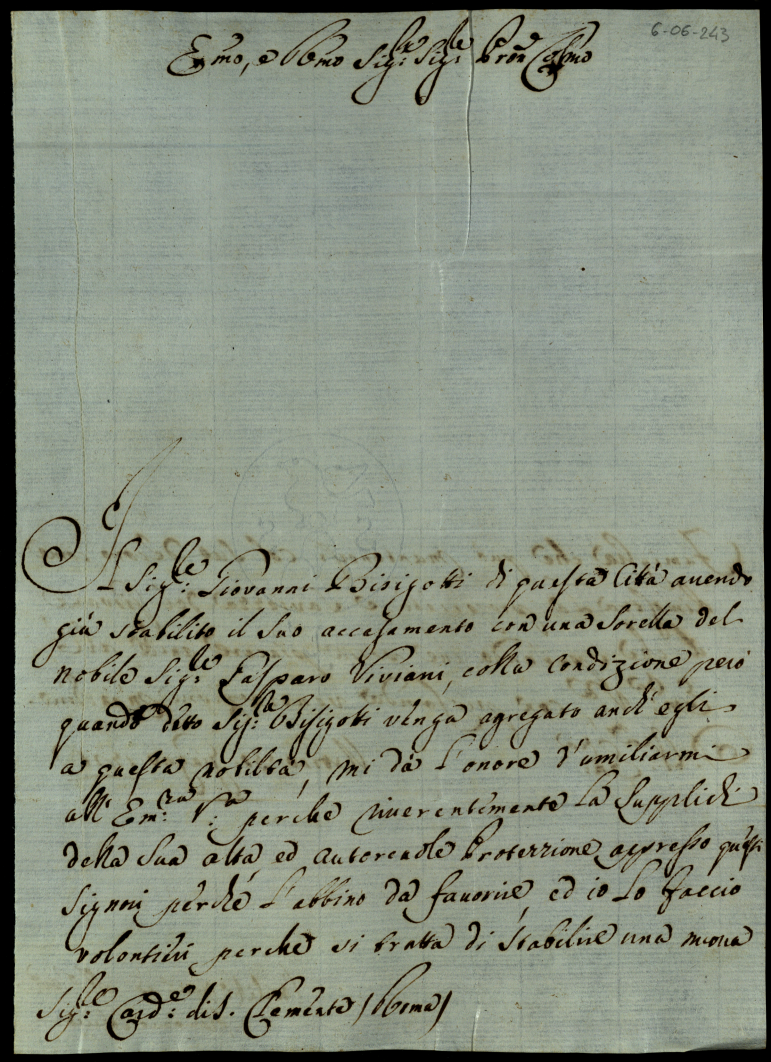 6-06-243
Emo, e Rmo Sig.r Sig.r Pron Colmo
Il Sig.re Giovanni Bisigotti di questa Città avendo
già stabilito il suo accasamento con una Sorella del
nobile Sig.re Gasparo Viviani, colla condizione però
quando detto Sig.re Bisigotti venga agregato anch'egli
a questa nobiltà, mi dà l'onore d'umiliarmi
all'Em.za V.a perche riverentemente La Supplichi
della Sua alta, ed autorevole Protezzione appresso questi
Signori perché l'abbino da favorire ed io lo faccio
volontieri perche si tratta di stabilire una nuova
Sig.re Card.e di S. Clemente (Roma)